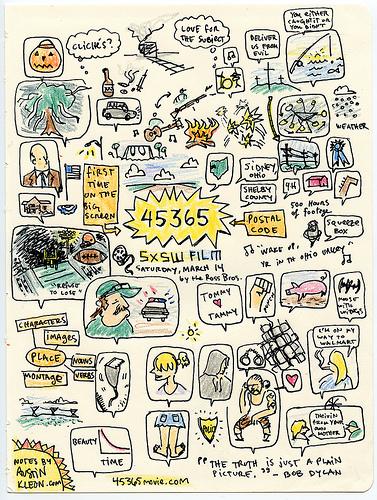 CLICHÉS?
LOVE FOR
THE SUBJECT
DELIVER
US FROM
EVIL
YOU EITHER
CAUGHT IT OR
YOU DIDN'T
WEATHER
FIRST
TIME
ON THE
BIG
SCREEN
SIDNEY,
OHIO
SHELBY
COUNTY
4H
500 HOURS
of footage
45365
POSTAL
CODE
SQUEEZE
BOX
SXSW FILM
SATURDAY, MARCH 14
by the Ross Bros.
"WAKE UP,
YR IN TH OHIO VALLEY"
"REFUSE
TO LOSE"
TOMMY
TAMMY
CHARACTERS
IMAGES
PLACE
NOUNS
VERBS
MONTAGE
I'M ON MY
WAY TO
WALMART
BEAUTY
TIME
THIEVIN'
FROM YOUR
OWN
MOTHER
NOTES BY
AUSTIN
KLEON.com
45365movie.com
"THE TRUTH IS JUST A PLAIN
PICTURE." — BOB DYLAN